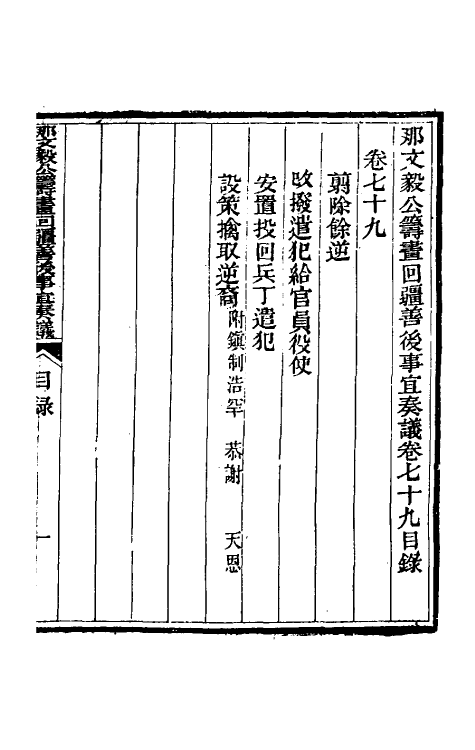 那文毅公籌畫回疆善後事宜奏議卷七十九目錄
卷七十九
翦除餘逆
改撥遣犯給官員役使
安置投回兵丁遣犯
設策擒取逆裔附鎮制浩罕 恭謝 天恩
那文毅公籌畫回疆善後事宜奏議 目録 一